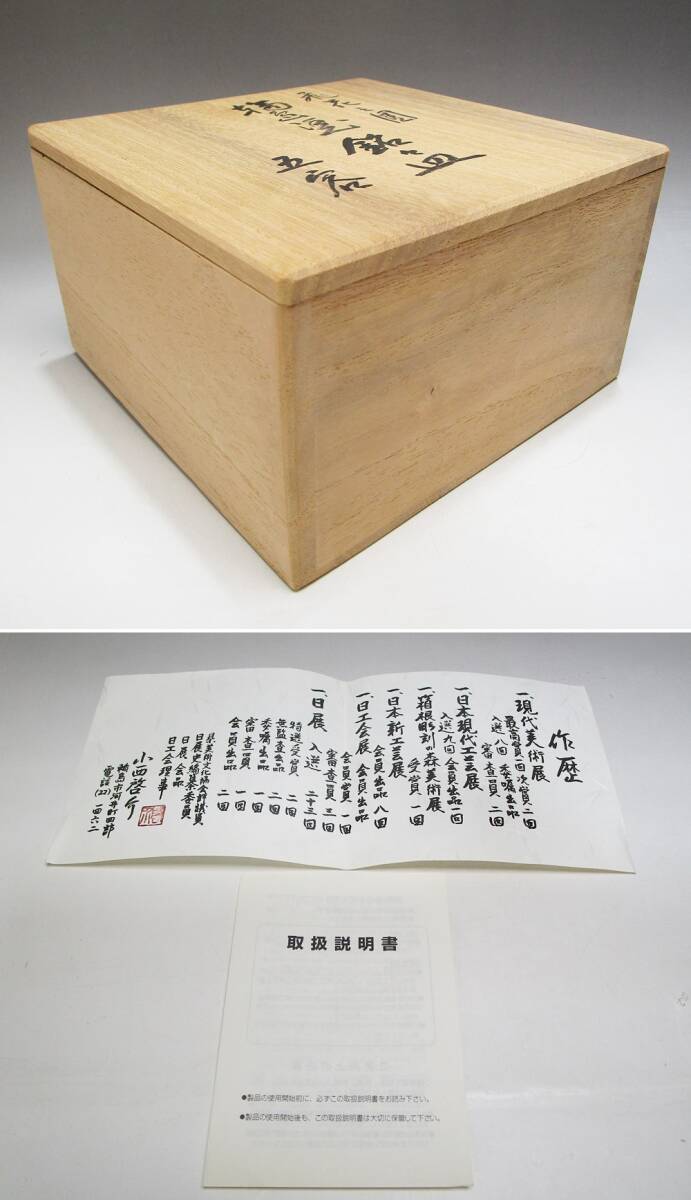 作歴
一、現代美術展
最高賞一回 次賞二回
入選八回 委嘱出品
審査員 二回
一、日本現代工芸展
入選九回 会員出品一回
一、箱根彫刻の森美術展
受賞 一回
一、日本新工芸展
会員出品 八回
一、日工会展 会員出品
会員賞 一回
審査員 三回
一、日展 入選 二十三回
特選受賞 二回
無監査出品 二回
委嘱出品 一回
審査員 一回
会員出品 二回
県美術文化協会評議員
日展史編纂委員
日展会品
日工会理事
小西啓介
輪島市河井町四部
電話(22)一四六二
取扱説明書
●製品の使用開始前に、必ずこの取扱説明書をお読み下さい。
●製品の使用開始後も、この取扱説明書は大切に保管して下さい。